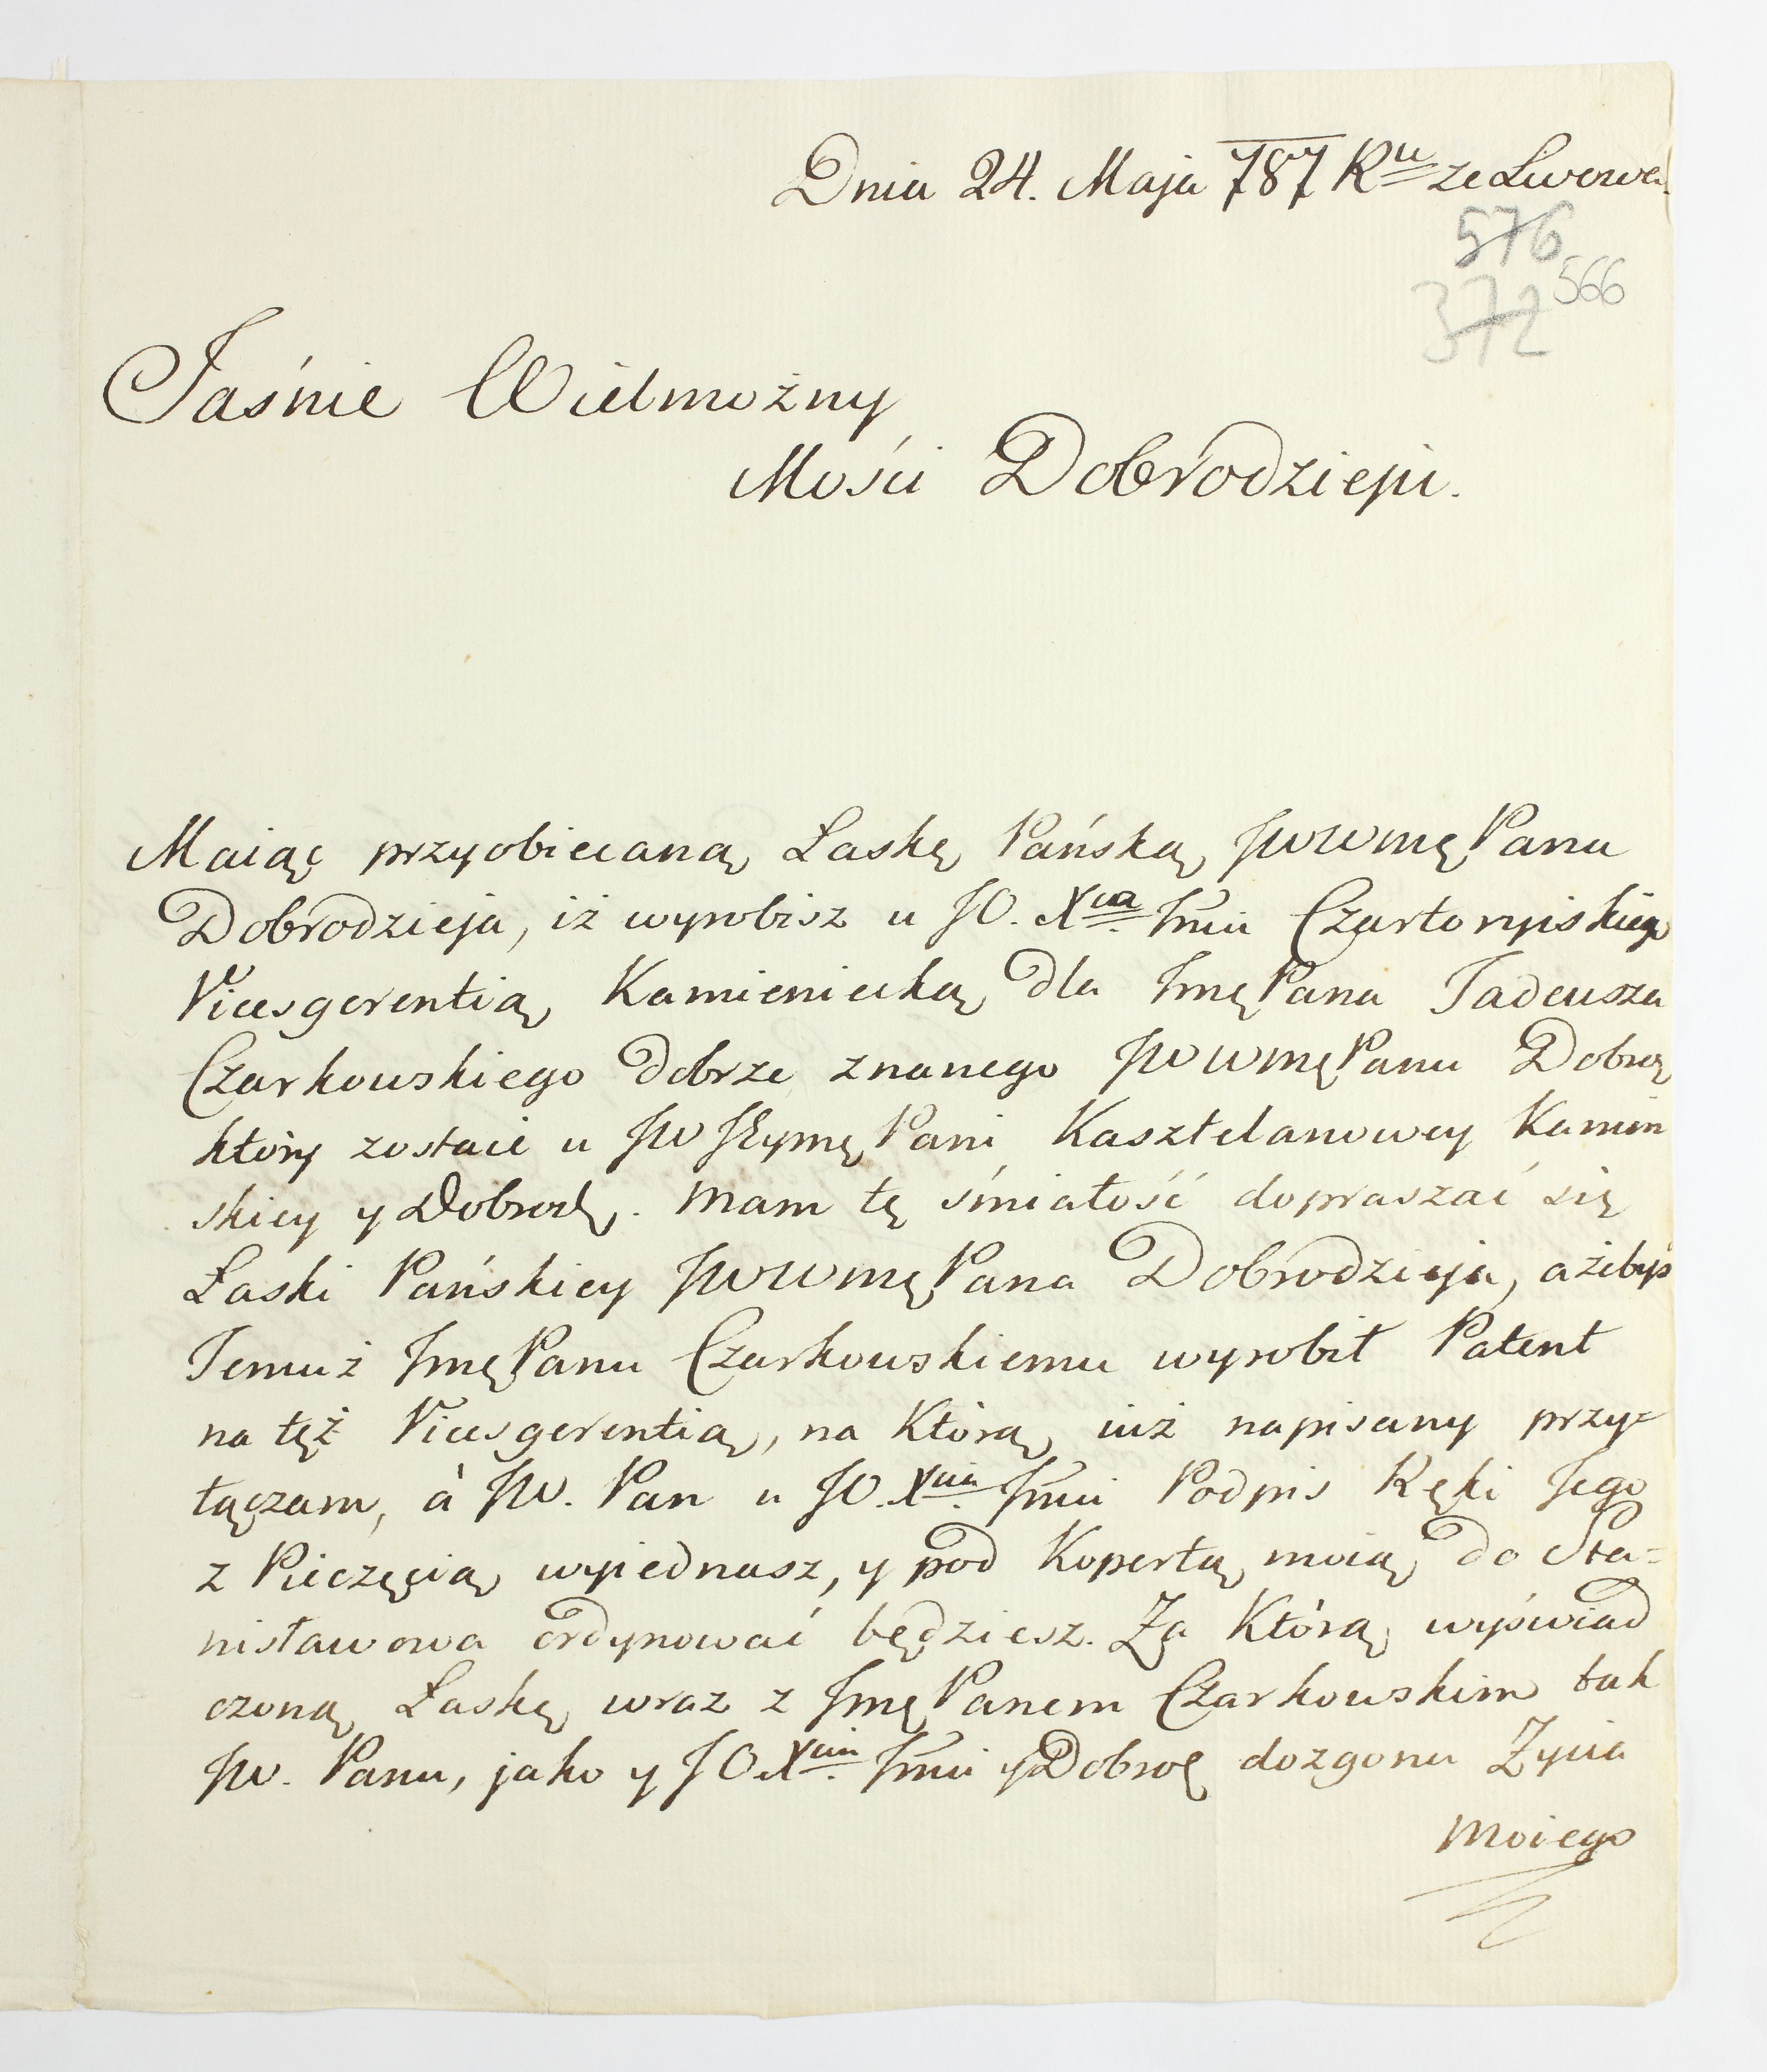 Dnia 24. Maja 787 Ru ze Lwowa.
576
566
372
Jaśnie Wielmożny
Mości Dobrodzieju.
Maiąc przyobiecaną Łaskę Pańską JWWmę Pana
Dobrodzieja, iż wyrobisz u JO. Xcia Jmci Czartoryiskiego
Vicesgerentią Kamieniecką dla Jmę Pana Tadeusza
Czarkowskiego dobrze znanego JWWmę Panu Dobro
który zostaie u JW JEymę Pani Kasztelanowey Kamin
skiey y Dobrodę. Mam tę śmiałość dopraszać się
Łaski Pańskiey JWWmę Pana Dobrodzieja, ażebyś
Temuż Jmę Panu Czarkowskiemu wyrobił Patent
na tęż Vicesgerentią, na Którą iuż napisany przy=
łączam, à JW. Pan u JO. Xcia Jmci Podpis Ręki Jego
z Pieczęcią wyiednasz, y pod Kopertą moią do Sta=
nisławowa ordynować będziesz. Za Którą wyświad
czoną Łaskę wraz z Jmę Panem Czarkowskim tak
JW. Panu, jako y JO Xciu Jmci y Dobroę dozgonu Życia
moiego